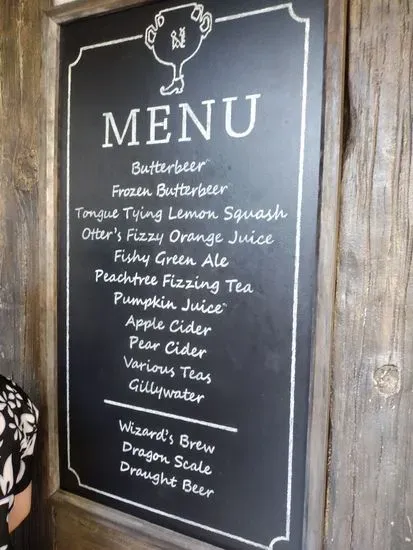 MENU
Butterbeer™
Frozen Butterbeer
Tongue Tying Lemon Squash
Otter's Fizzy Orange Juice
Fishy Green Ale
Peachtree Fizzing Tea
Pumpkin Juice™
Apple Cider
Pear Cider
Various Teas
Gillywater
Wizard's Brew
Dragon Scale
Draught Beer